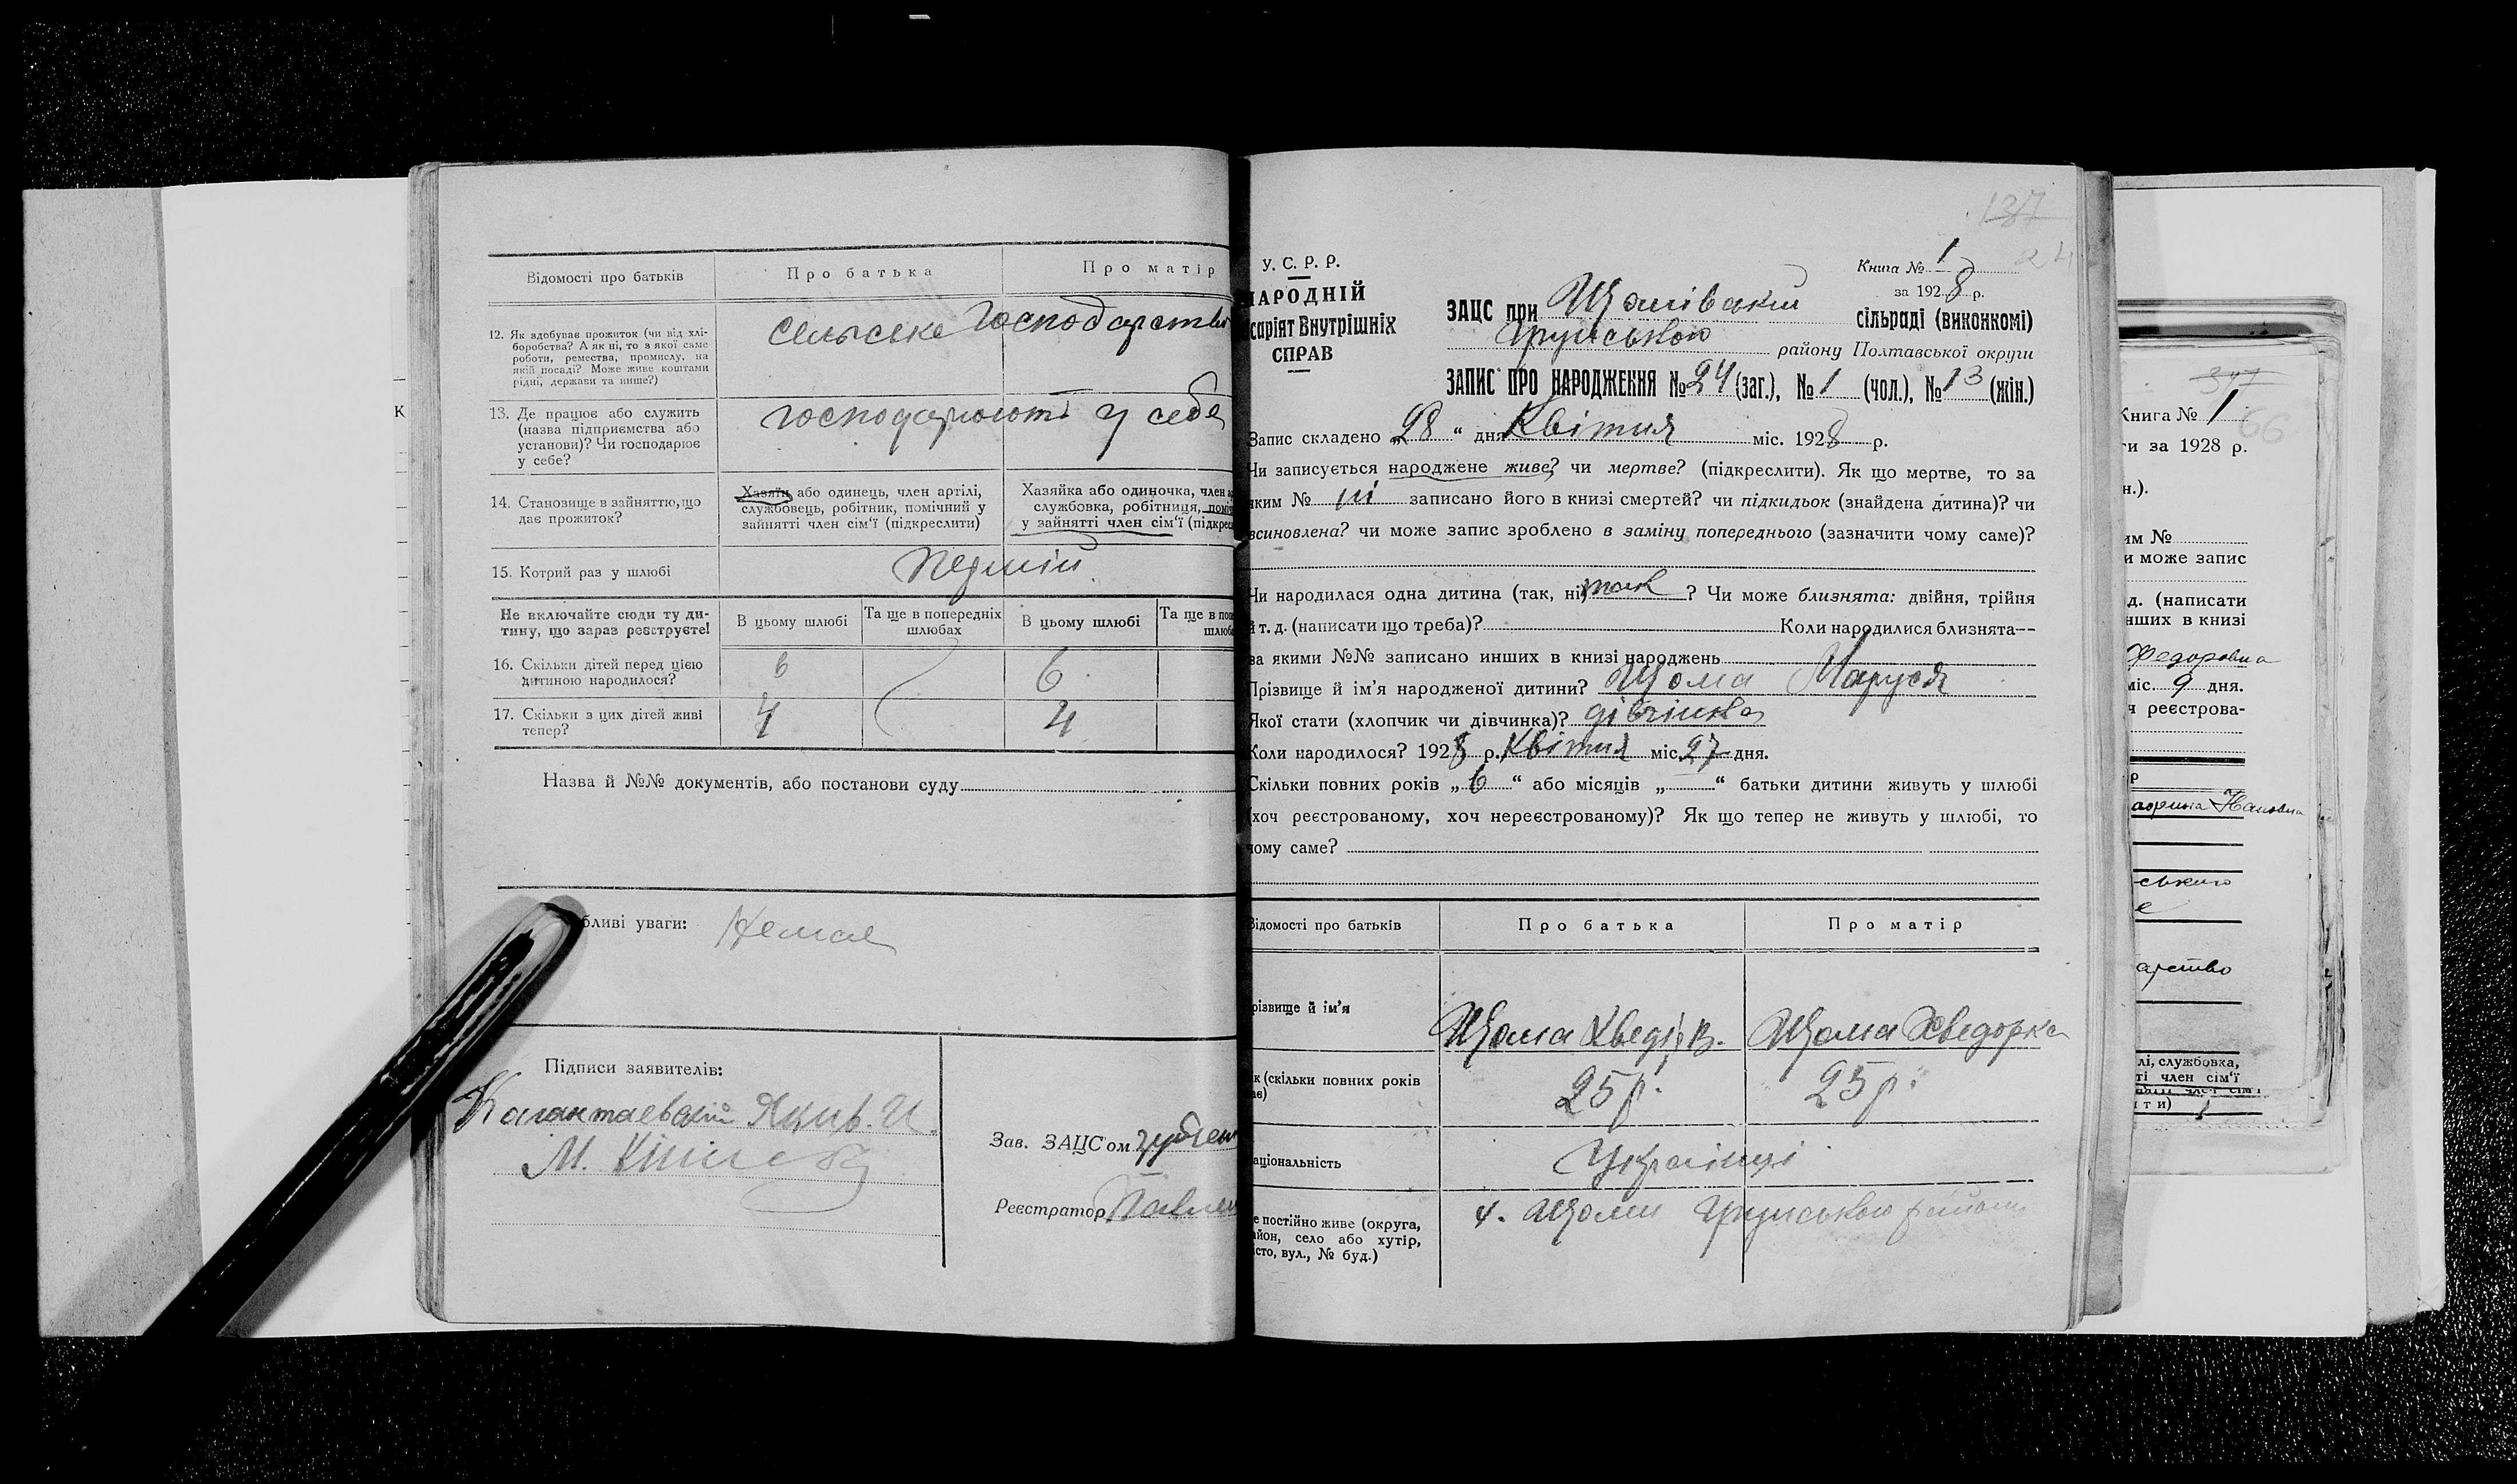 Відомості про батьків
Про батька
Про матір
12. Як здобуває прожиток (чи від хлі-
боробства? А як ні, то з якої саме
роботи, ремества, промислу, на
якій посаді? Може живе коштами
рідні, держави та инше?)
сельське господарство
13. Де працює або служить
(назва підприємства або
установи)? Чи господарює
у себе?
господарюють у себе
14. Становище в зайняттю, що
дає прожиток?
Хазяїн або одинець, член артілі,
службовець, робітник, помічний у
зайнятті член сім'ї (підкреслити)
Хазяйка або одиночка, член
службовка, робітниця,
у зайнятті член сім'ї
15. Котрий раз у шлюбі
Перший
Не включайте сюди ту ди-
тину, що зараз реєструєте!
В цьому шлюбі
Та ще в попередніх
шлюбах
В цьому шлюбі
Та ще в
16. Скільки дітей перед цією
дитиною народилося?
6
6
17. Скільки з цих дітей живі
тепер?
4
4
Назва й №№ документів, або постанови суду
бливі уваги: Немає
Підписи заявителів:
Зав. ЗАЦС'ом
Реєстратор
137
24
У. С. Р. Р.
НАРОДНІЙ
саріят Внутрішніх
СПРАВ
Книга № 1
за 1928 р.
ЗАЦС при Щомівській
сільраді (виконкомі)
Грунського району Полтавської округи
ЗАПИС ПРО НАРОДЖЕННЯ № 24 (заг.), № 1 (чол.), № 13 (жін.)
Запис складено „28“ дня Квітня міс. 1928 р.
Чи записується народжене живе? чи мертве? (підкреслити). Як що мертве, то за
яким № записано його в книзі смертей? чи підкидьок (знайдена дитина)? чи
всиновлена? чи може запис зроблено в заміну попереднього (зазначити чому саме)?
Чи народилася одна дитина (так, ні) так? Чи може близнята: двійня, трійня
й т. д. (написати що треба)? Коли народилися близнята—
за якими №№ записано инших в книзі народжень
Прізвище й ім'я народженої дитини? Щома Маруся
Якої стати (хлопчик чи дівчинка)? дівчинка
Коли народилося? 1928 р. Квітня міс. 27 дня.
Скільки повних років „6“ або місяців „ “ батьки дитини живуть у шлюбі
(хоч реєстрованому, хоч нереєстрованому)? Як що тепер не живуть у шлюбі, то
чому саме?
Відомості про батьків
Про батька
Про матір
різвище й ім'я
Щома Хведір В.
Щома Хведорка
к (скільки повних років
ає)
25 р.
25 р.
аціональність
Українці
е постійно живе (округа,
айон, село або хутір,
істо, вул., № буд.)
х. Щоми Грунського району
347
66
Книга № 1
ти за 1928 р.
н.).
им №
и може запис
д. (написати
нших в книзі
Федоровна
міс. 9 дня.
я реєстрова-
ського
арство
лі, службовка,
ті член сім'ї